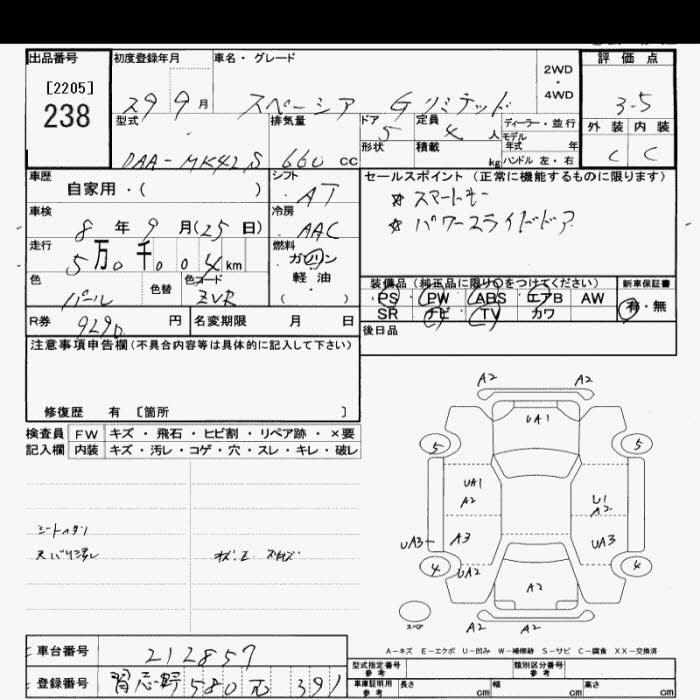 出品番号
[2205]
238
初度登録年月
29 9 月
車名・グレード
スペーシア Gリミテッド
2WD
・
4WD
評価点
3.5
外装 内装
C C
型式
DAA-MK42S
排気量
660 cc
ドア
5
定員
4 人
ディーラー・並行
モデル
年式 年
形状
積載
kg
ハンドル 左・右
車歴
自家用・( )
シフト
AT
車検
8 年 9 月(25 日)
冷房
AAC
走行
5万0千004km
燃料
ガソリン
軽油
( ・ )
色
パール
色替
色コード
ZVR
R券
9290 円
名変期限 月 日
セールスポイント (正常に機能するものに限ります)
☆ スマートキー
☆ パワースライドドア
装備品 (純正品に限り○をつけてください)
PS PW ABS エアB AW
SR ナビ TV カワ
新車保証書
有・無
後日品
注意事項申告欄(不具合内容等は具体的に記入して下さい)
修復歴 有 [箇所 ]
検査員 FW キズ・飛石・ヒビ割・リペア跡・×要
記入欄 内装 キズ・汚レ・コゲ・穴・スレ・キレ・破レ
A2 A2
UA1
5 5
UA1
A2
U1
A2
UA3 A3 UA3
4 UA2 4
A2
A2 A2
スペア
A-キズ E-エクボ U-凹み W-補修跡 S-サビ C-腐食 XX-交換済
車台番号
212857
登録番号
習志野 580 391
型式指定番号
参考
類別区分番号
参考
車庫証明用
参考
長さ cm 幅 cm 高さ cm